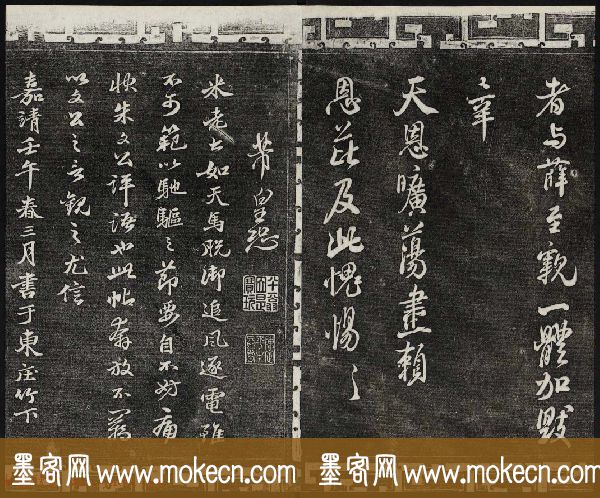 者与薛至親一體加歟
幸
天恩曠蕩盡賴
恩茲及此愧惕
芾皇恐
米老書如天馬脫御追風逐電雖
不可範以馳驅之節要自不妨痛
快朱文公評語也此帖奔放不羈
以文公之言觀之尤信
嘉靖壬午春三月書于東庄竹下
墨客网 www.mokecn.com 墨客网 www.mokecn.com